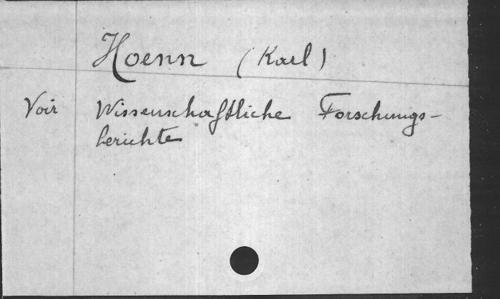 Hoenn (Karl)
Voir Wissenschaftliche Forschungs-
berichte